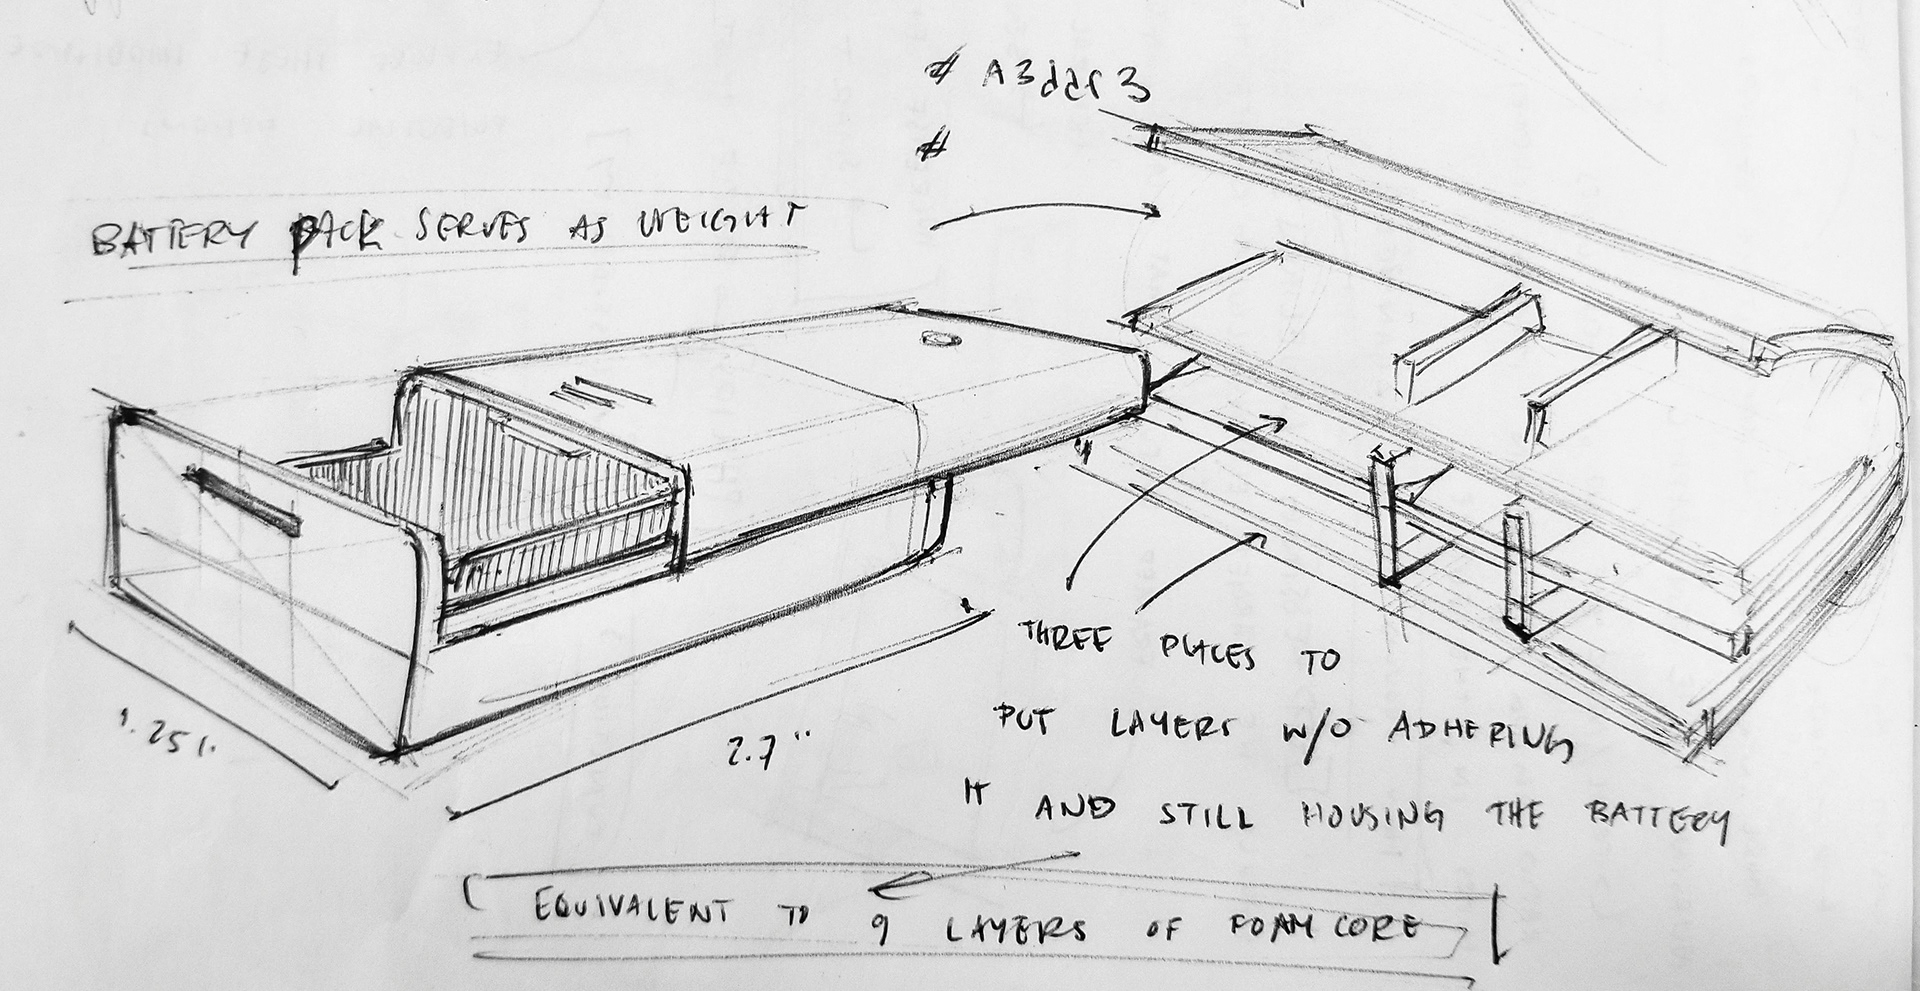 # A3ddr3
#
BATTERY PACK SERVES AS WEIGHT
1.25"
2.7"
THREE PLACES TO
PUT LAYERS W/O ADHERING
IT AND STILL HOUSING THE BATTERY
EQUIVALENT TO 9 LAYERS OF FOAM CORE